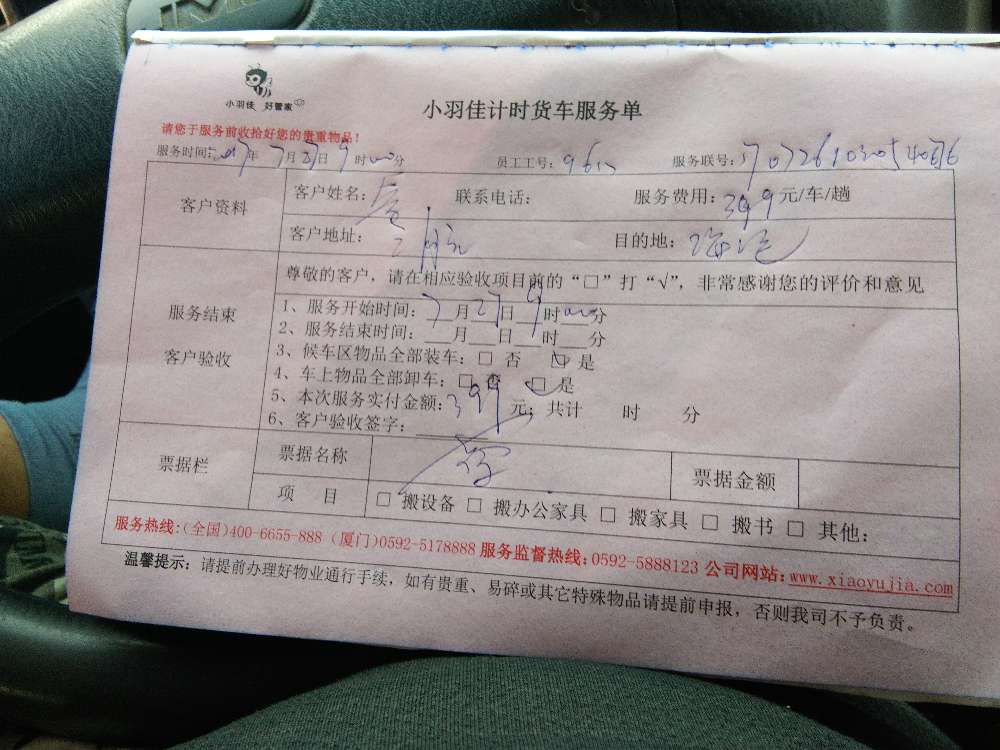 小羽佳 好管家
小羽佳计时货车服务单
请您于服务前收拾好您的贵重物品！
服务时间：2017年7月27日9时00分 员工工号： 服务联号：
客户资料
客户姓名： 联系电话： 服务费用：399元/车/趟
客户地址： 目的地：海沧
服务结束
客户验收
尊敬的客户，请在相应验收项目前的“□”打“√”，非常感谢您的评价和意见
1、服务开始时间：7月27日9时00分
2、服务结束时间：___月___日___时___分
3、候车区物品全部装车：□ 否 □ 是
4、车上物品全部卸车：□ □ 是
5、本次服务实付金额：399元；共计 时 分
6、客户验收签字：
票据栏
票据名称 票据金额
项 目 □ 搬设备 □ 搬办公家具 □ 搬家具 □ 搬书 □ 其他：
服务热线：(全国)400-6655-888 (厦门)0592-5178888 服务监督热线：0592-5888123 公司网站：www.xiaoyujia.com
温馨提示：请提前办理好物业通行手续，如有贵重、易碎或其它特殊物品请提前申报，否则我司不予负责。